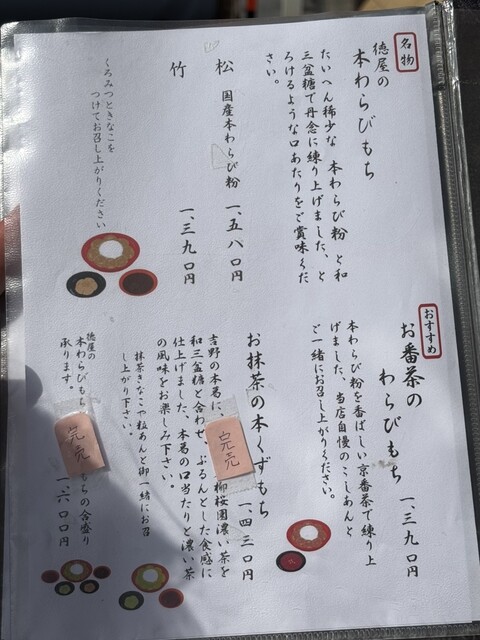 名物
徳屋の
本わらびもち
たいへん稀少な 本わらび粉 と和
三盆糖で丹念に練り上げました、と
ろけるような口あたりをご賞味くだ
さい。
松 国産本わらび粉 一、五八〇円
竹 一、三九〇円
くろみつときなこを
つけてお召し上がりください
おすすめ
お番茶の
わらびもち 一、三九〇円
本わらび粉を香ばしい京番茶で練り上
げました、当店自慢のこしあんと
ご一緒にお召し上がりください。
お抹茶の本くずもち 一、四三〇円
吉野の本葛に、 柳桜園濃い茶を
和三盆糖と合わせ、ぷるんとした食感に
仕上げました、本葛の口当たりと濃い茶
の風味をお楽しみ下さい。
抹茶きなこや粒あんと御一緒にお召
し上がり下さい。
完売
徳屋の
本わらびも もちの合盛り
承ります。 一、六〇〇円
完売